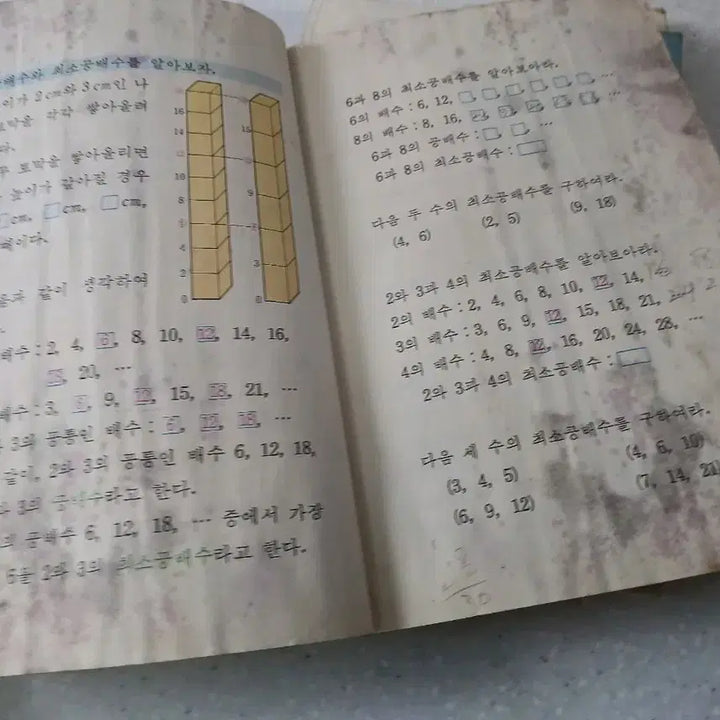 배수와 최소공배수를 알아보자.
이가 2cm와 3cm인 나
토막을 각각 쌓아올려
다.
토막을 쌓아올리면
높이가 같아질 경우
□cm, □cm, □cm,
이다.
같이 생각하여
배수 : 2, 4, 6, 8, 10, 12, 14, 16,
18, 20, …
배수 : 3, 6, 9, 12, 15, 18, 21, …
3의 공통인 배수 : 6, 12, 18, …
같이, 2와 3의 공통인 배수 6, 12, 18,
와 3의 공배수라고 한다.
의 공배수 6, 12, 18, … 중에서 가장
6을 2와 3의 최소공배수라고 한다.
16
14
10
8
4
2
0
15
9
3
0
6과 8의 최소공배수를 알아보아라.
6의 배수 : 6, 12, □, □, □, □, □, □, …
8의 배수 : 8, 16, …
6과 8의 공배수 : □, □, …
6과 8의 최소공배수 : □
다음 두 수의 최소공배수를 구하여라.
(4, 6) (2, 5) (9, 18)
2와 3과 4의 최소공배수를 알아보아라.
2의 배수 : 2, 4, 6, 8, 10, 12, 14,
3의 배수 : 3, 6, 9, 12, 15, 18, 21,
4의 배수 : 4, 8, 12, 16, 20, 24, 28, …
2와 3과 4의 최소공배수 : □
다음 세 수의 최소공배수를 구하여라.
(3, 4, 5) (4, 6, 10)
(6, 9, 12) (7, 14, 21)